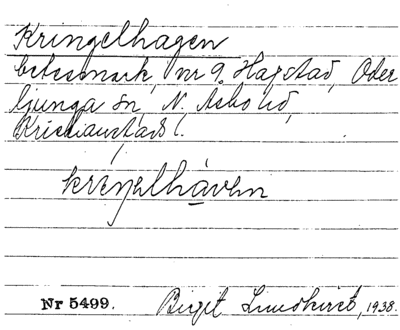 Kringelhagen
betesmark, nr 9. Hagstad, Oder
ljunga sn, N. Åsbo hd,
Kristianstads l.
Nr 5499. Birgit Lindkvist, 1938.